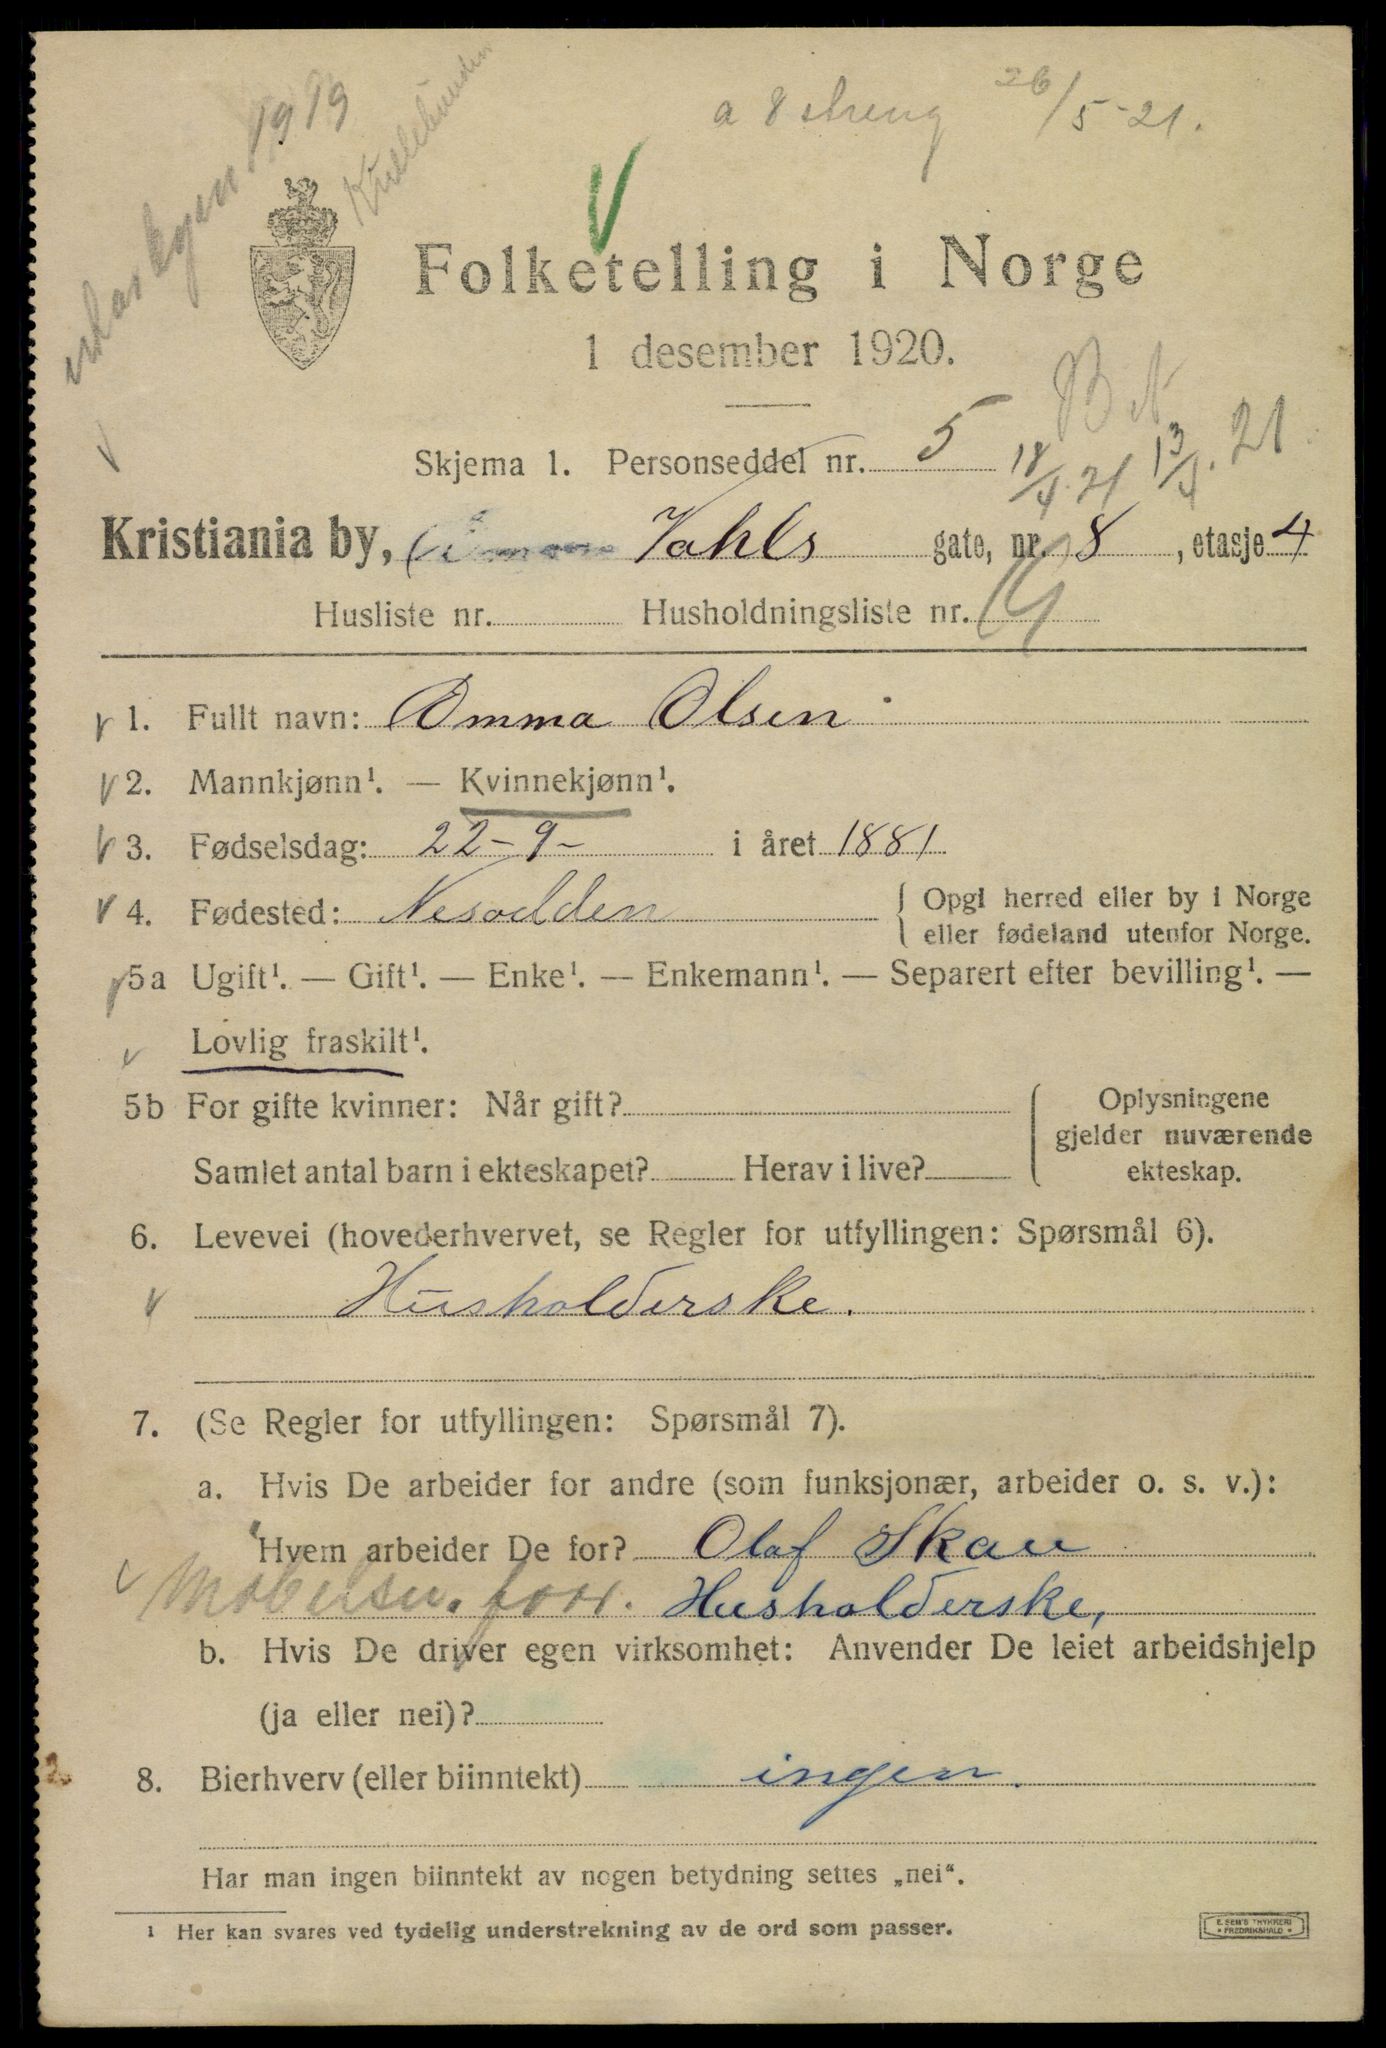 1919
26/5-21.
Folketelling i Norge
1 desember 1920.
Skjema 1. Personseddel nr. 5
18/4 21 13/4. 21
Kristiania by, Vahls gate, nr. 8, etasje 4
Husliste nr. Husholdningsliste nr.
1. Fullt navn: Emma Olsen
2. Mannkjønn¹. — Kvinnekjønn¹.
3. Fødselsdag: 22-9- i året 1881
4. Fødested: Nesodden { Opgi herred eller by i Norge
eller fødeland utenfor Norge.
5a Ugift¹. — Gift¹. — Enke¹. — Enkemann¹. — Separert efter bevilling¹. —
Lovlig fraskilt¹.
5b For gifte kvinner: Når gift?
Samlet antal barn i ekteskapet? Herav i live?
Oplysningene
gjelder nuværende
ekteskap.
6. Levevei (hovederhvervet, se Regler for utfyllingen: Spørsmål 6).
Husholderske.
7. (Se Regler for utfyllingen: Spørsmål 7).
a. Hvis De arbeider for andre (som funksjonær, arbeider o. s. v.):
Hvem arbeider De for? Olaf Skau
Husholderske,
b. Hvis De driver egen virksomhet: Anvender De leiet arbeidshjelp
(ja eller nei)?
8. Bierhverv (eller biinntekt) ingen.
Har man ingen biinntekt av nogen betydning settes „nei“.
¹ Her kan svares ved tydelig understrekning av de ord som passer.
E. SEM'S TRYKKERI
• FREDRIKSHALD •